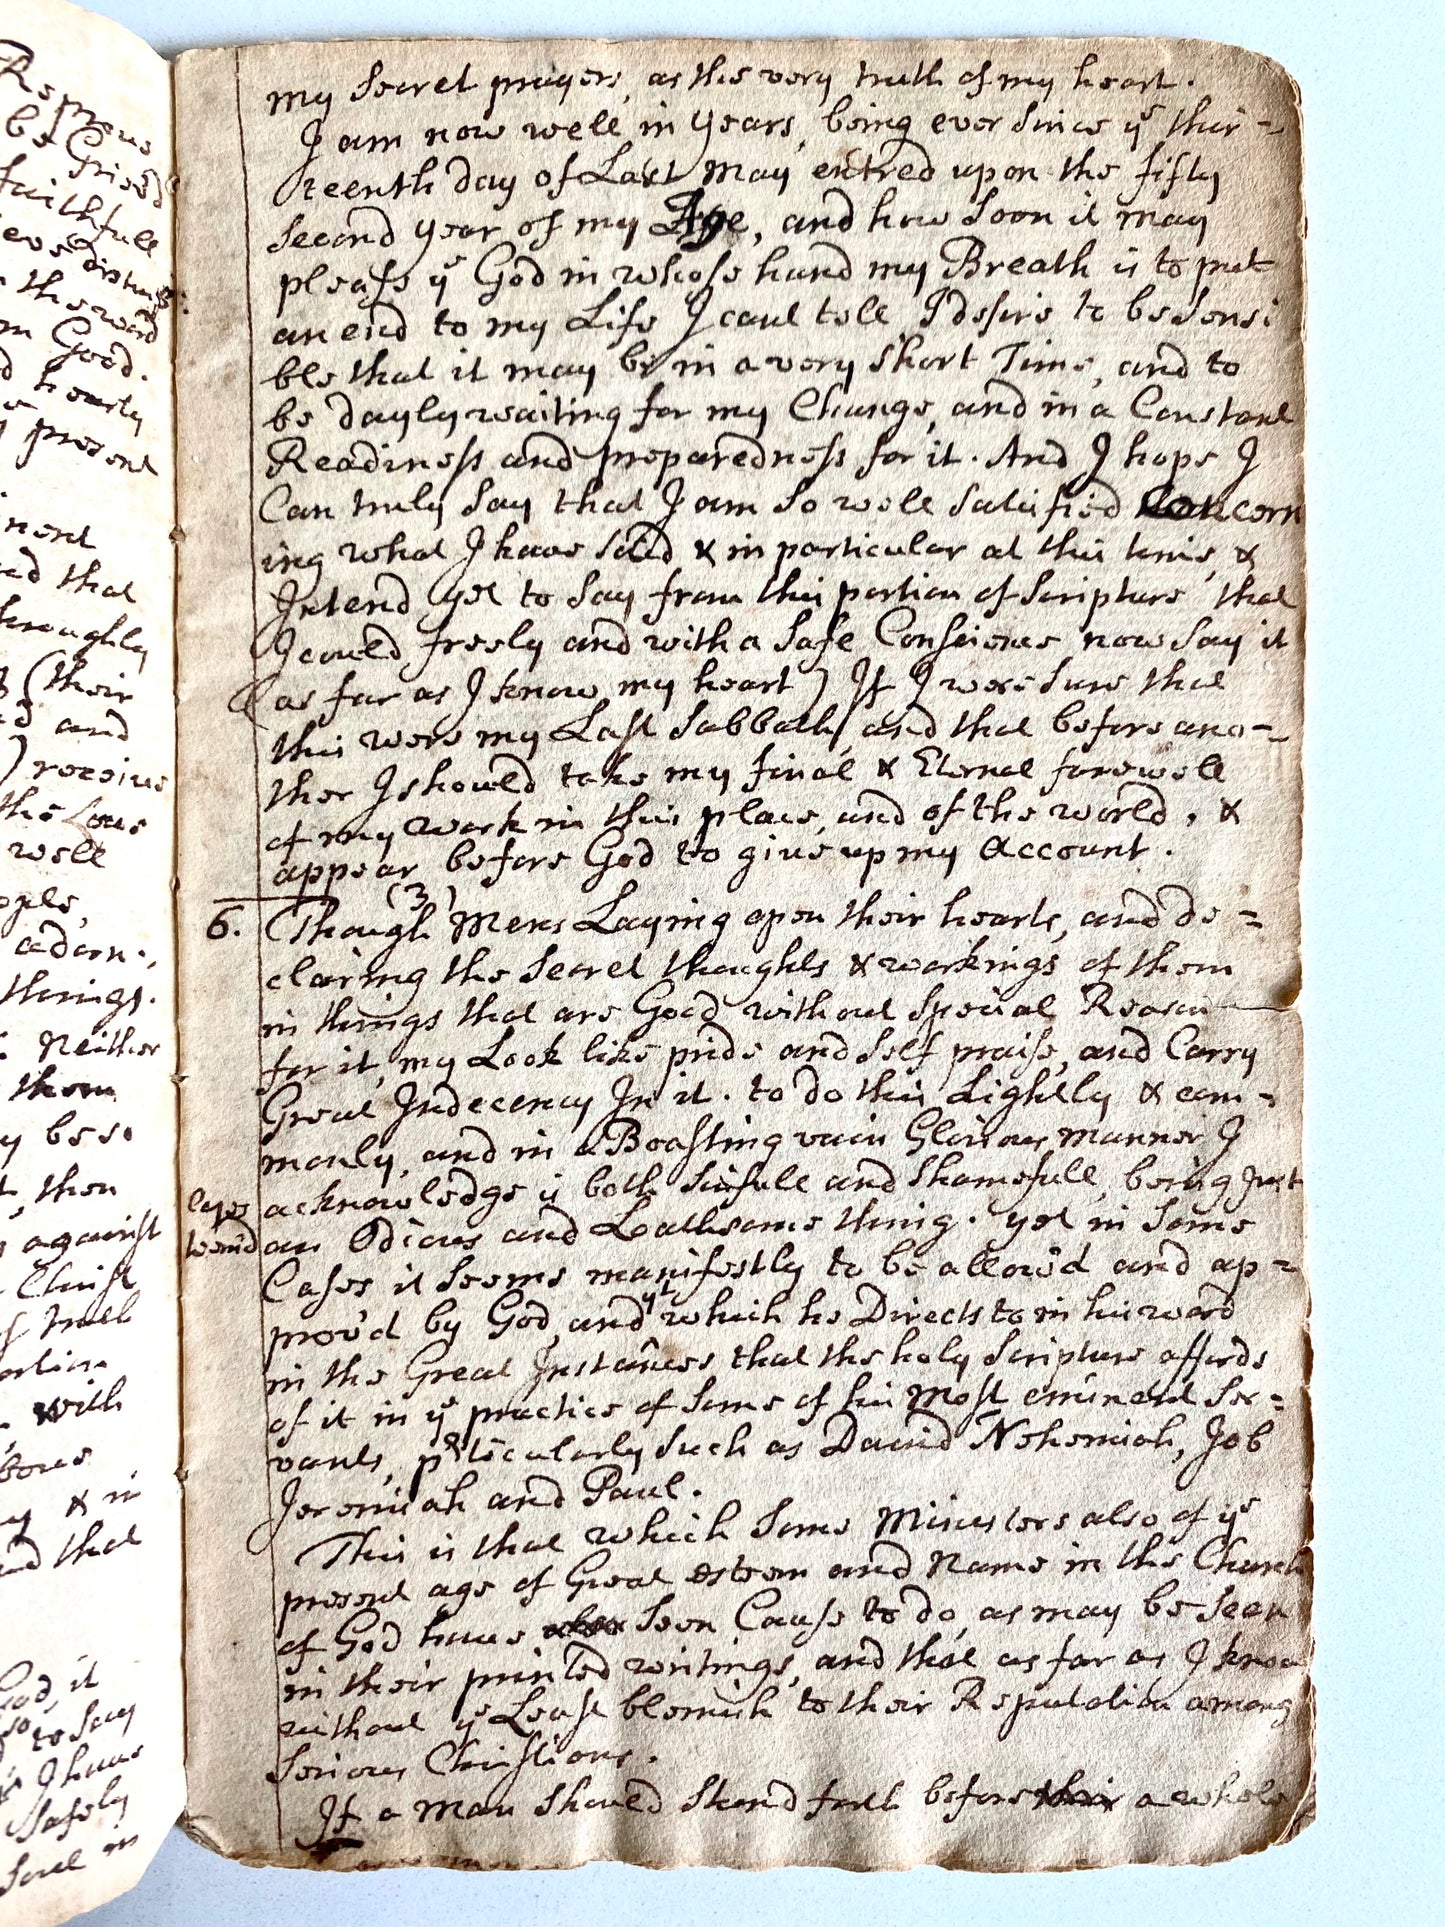 my secret prayers, as the very truth of my heart.
I am now well in years, being ever since yᵉ thir=
teenth day of Last May entred upon the fifty
second year of my Age, and how soon it may
please yᵉ God in whose hand my Breath is to put
an end to my Life I cant tell, I desire to be sensi
ble that it may be in a very short Time, and to
be dayly waiting for my Change, and in a Constant
Readiness and preparedness for it. And I hope I
Can truly say that I am so well satisfied Concern
ing what I have said & in particular at this time, &
Intend yet to say from this portion of scripture that
I could freely and with a safe Conscience now say it
(as far as I know my heart) If I were sure that
this were my Last Sabbath, and that before ano=
ther I should take my final & Eternal farewell
of my work in this place, and of the world, &
appear before God to give up my Account.
(3)
6. Though Mens Laying open their hearts, and de=
claring the secret thoughts & workings of them
in things that are Good without special Reason
for it, my Look like pride and self praise, and Carry
Great Indecency In it. to do this Lightly & com=
monly, and in a Boasting vain Glorious manner I
acknowledge is both sinfull and shamefull, being Just
an Odious and Loathsome thing. yet in some
Cases it seems manifestly to be allow'd and ap=
prov'd by God, and yᵗ which he Directs to in his word
in the Great Instances that the holy scripture affords
of it in yᵉ practice of some of his most eminent Ser=
vants, pʳticularly such as David Nehemiah, Job
Jeremiah and Paul.
This is that which some Ministers also of yᵉ
present age of Great esteem and Name in the Church
of God have seen Cause to do, as may be seen
in their printed writings, and that as far as I know
without yᵉ Least blemish to their Reputation among
serious Christians.
If a man should stand forth before a whole